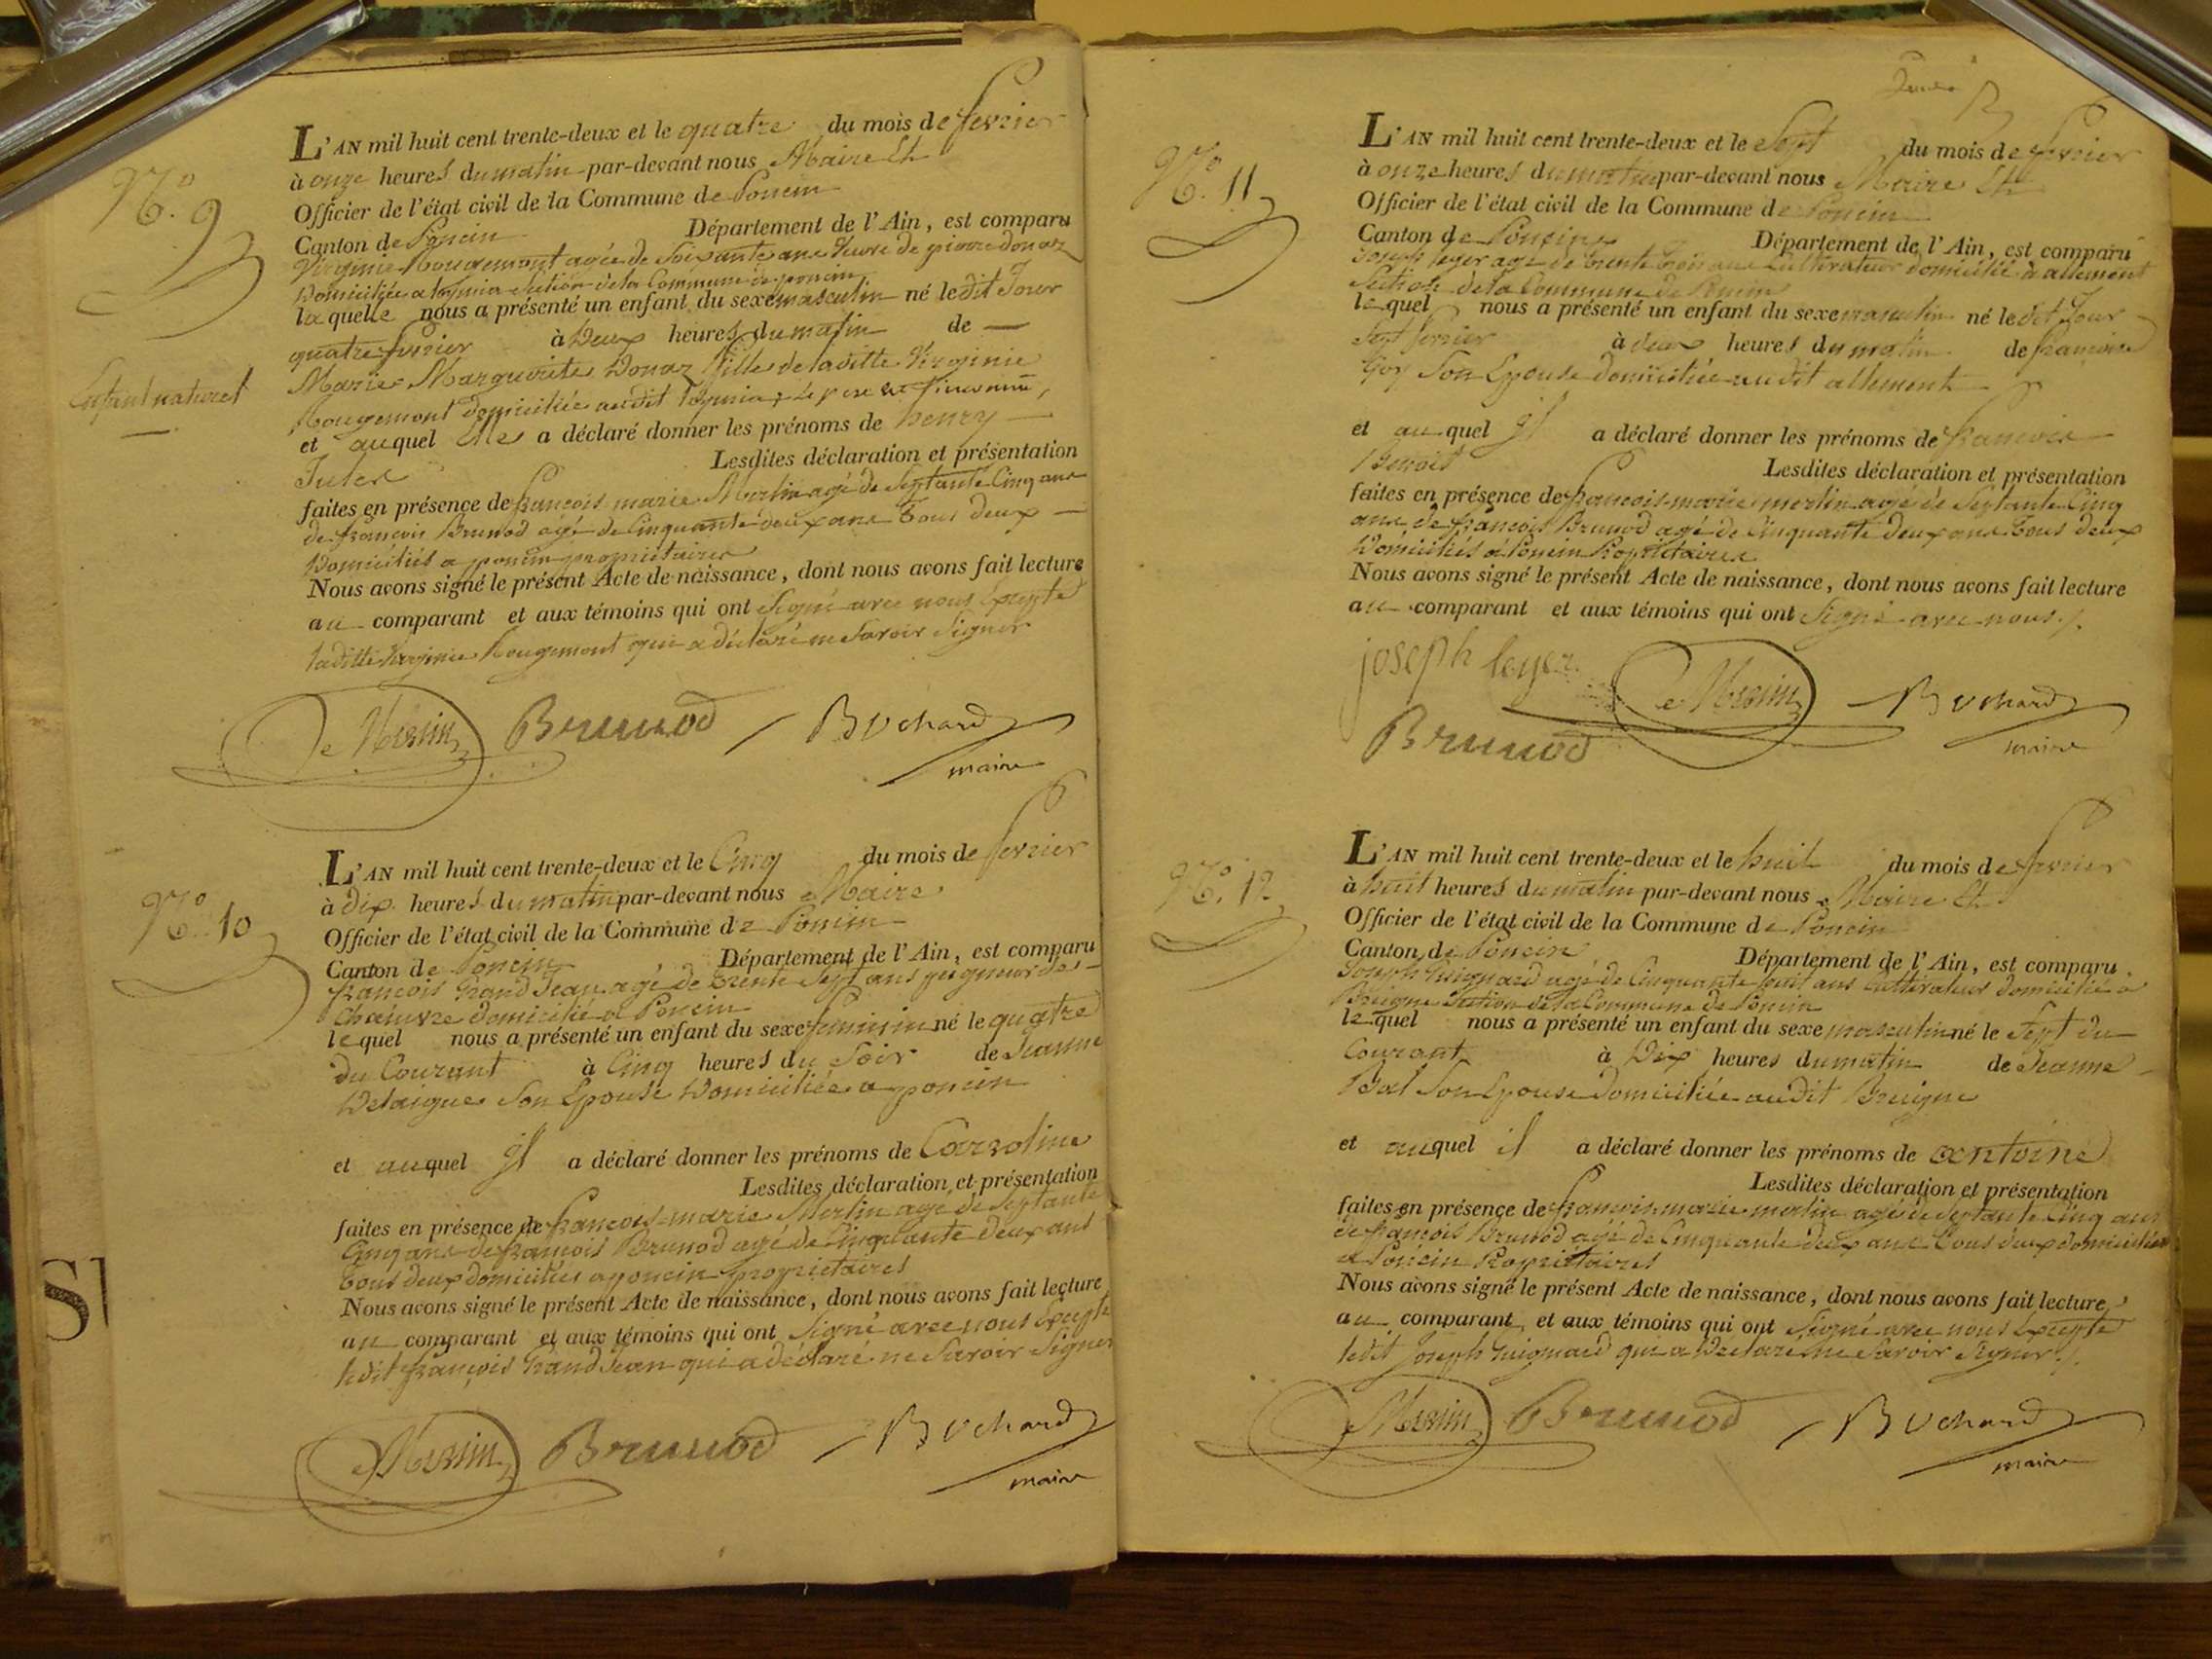 N.º 9
Enfant naturel
L'AN mil huit cent trente-deux et le quatre du mois de fevrier
à onze heures du matin par-devant nous Maire Et
Officier de l'état civil de la Commune de Poncin
Canton de Poncin Département de l'Ain, est comparu
Virginie Rougemont agée de Soixante ans veuve de pierre donaz
Domiciliée a section de la Commune de poncin
la quelle nous a présenté un enfant du sexe masculin né le dit Jour
quatre fevrier à Deux heures du matin de —
Marie Marguerite Donaz fille de laditte Virginie
Rougemont domiciliée audit Le pere est inconnu,
et auquel Elle a déclaré donner les prénoms de henry
Jules Lesdites déclaration et présentation
faites en présence de françois marie Merlin agé de Septante Cinq ans
de françois Brunod agé de Cinquante deux ans tous deux
Domiciliés a poncin propriétaires
Nous avons signé le présent Acte de naissance, dont nous avons fait lecture
au comparant et aux témoins qui ont Signé avec nous Excepté
laditte Virginie Rougemont qui a déclaré ne Savoir Signer
Merlin Brunod Buchard
maire
N.º 10
L'AN mil huit cent trente-deux et le Cinq du mois de fevrier
à dix heures du matin par-devant nous Maire
Officier de l'état civil de la Commune de Poncin
Canton de Poncin Département de l'Ain, est comparu
françois Grand Jean agé de trente Sept ans peigneur de
chanvre domicilié a Poncin
le quel nous a présenté un enfant du sexe feminin né le quatre
du Courant à Cinq heures du Soir de Jeanne
Delaigue Son Epouse Domiciliée a poncin
et auquel Il a déclaré donner les prénoms de Carroline
Lesdites déclaration et présentation
faites en présence de françois-marie Merlin agé de Septante
Cinq ans de françois Brunod agé de Cinquante deux ans
tous deux domiciliés a poncin propriétaires
Nous avons signé le présent Acte de naissance, dont nous avons fait lecture
au comparant et aux témoins qui ont Signé avec nous Excepté
ledit françois Grand Jean qui a déclaré ne Savoir Signer
Merlin Brunod Buchard
maire
N.º 11
L'AN mil huit cent trente-deux et le Sept du mois de fevrier
à onze heures du matin par-devant nous Maire Et
Officier de l'état civil de la Commune de Poncin
Canton de Poncin Département de l'Ain, est comparu
Joseph leyer agé de trente trois ans Cultivateur domicilié à allement
Section de la Commune de Poncin
le quel nous a présenté un enfant du sexe masculin né le dit Jour
Sept fevrier à deux heures du matin de françoise
Goy Son Epouse domiciliée audit allement
et au quel Il a déclaré donner les prénoms de françois
Benoit Lesdites déclaration et présentation
faites en présence de francois-marie merlin agé de Septante Cinq
ans de françois Brunod agé de Cinquante deux ans tous deux
Domiciliés à Poncin Propriétaires
Nous avons signé le présent Acte de naissance, dont nous avons fait lecture
au comparant et aux témoins qui ont Signé avec nous /.
joseph leyer Merlin Buchard
Brunod maire
N.º 12
L'AN mil huit cent trente-deux et le huit du mois de fevrier
à huit heures du matin par-devant nous Maire Et
Officier de l'état civil de la Commune de Poncin
Canton de Poncin Département de l'Ain, est comparu
Joseph Guignard agé de Cinquante huit ans Cultivateur domicilié a
Breigne Section de la Commune de Poncin
le quel nous a présenté un enfant du sexe masculin né le Sept du
Courant à Dix heures du matin de Jeanne
Bal Son Epouse domiciliée audit Breigne
et auquel il a déclaré donner les prénoms de antoine
Lesdites déclaration et présentation
faites en présence de francois-marie merlin agé de Septante Cinq ans
de françois Brunod agé de Cinquante deux ans tous deux domiciliés
a Poncin Propriétaires
Nous avons signé le présent Acte de naissance, dont nous avons fait lecture
au comparant et aux témoins qui ont Signé avec nous Excepté
ledit Joseph Guignard qui a Declaré ne Savoir Signer /.
Merlin Brunod Buchard
maire